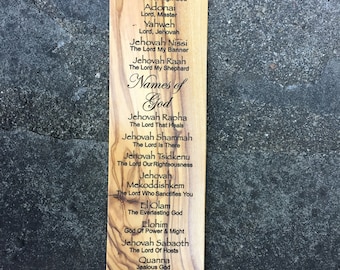 Adonai
Lord, Master
Yahweh
Lord, Jehovah
Jehovah Nissi
The Lord My Banner
Jehovah Raah
The Lord My Shephard
Names of
God
Jehovah Rapha
The Lord That Heals
Jehovah Shammah
The Lord Is There
Jehovah Tsidkenu
The Lord Our Righteousness
Jehovah
Mekoddishkem
The Lord Who Sanctifies You
El Olam
The Everlasting God
Elohim
God Of Power & Might
Jehovah Sabaoth
The Lord Of Hosts
Quanna
Jealous God